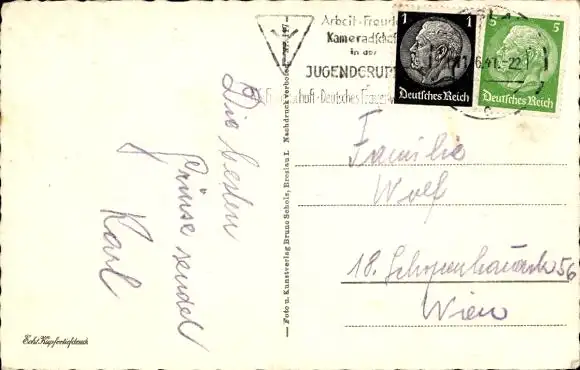 Die besten
Grüsse sendet
Karl
Echt Kupfertiefdruck
— Foto u. Kunstverlag Bruno Scholz, Breslau I. Nachdruck verboten — Nr. 147 —
Arbeit-Freude
Kameradschaft
in der
JUGENDGRUPPE
Deutsches Frauen
1 1
Deutsches Reich
5 5
Deutsches Reich
6.41.-22
Familie
Wolf
18. Schopenhauerstr 56
Wien